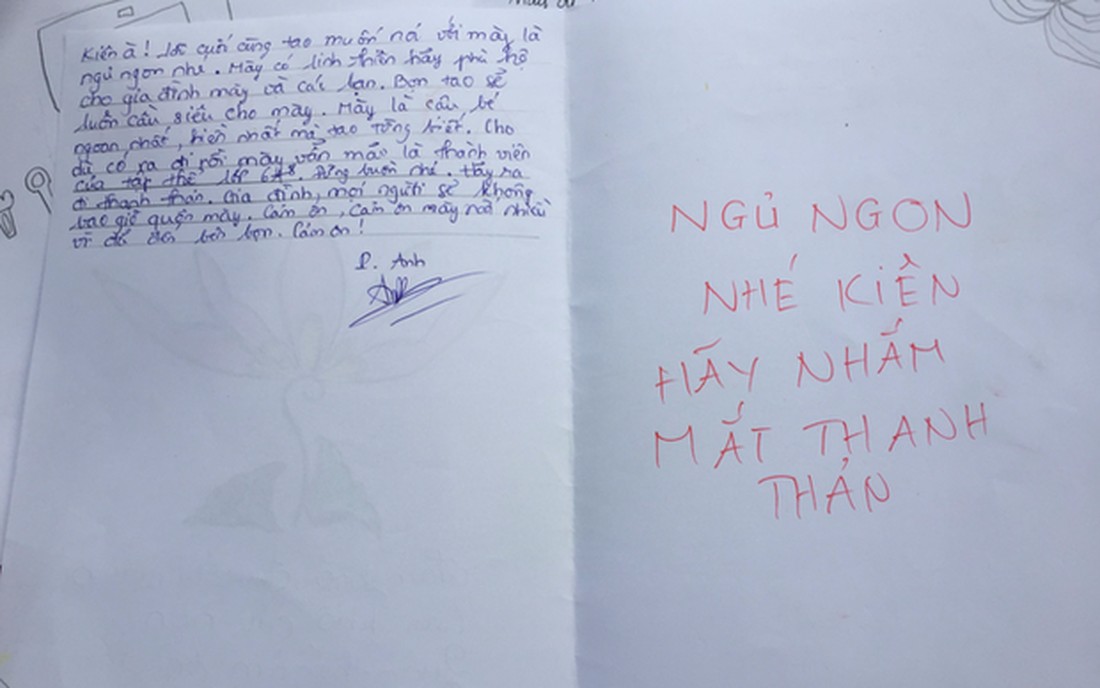 Kiên à! Lời cuối cùng tao muốn nói với mày là
ngủ ngon nhé. Mày có linh thiên hãy phù hộ
cho gia đình mày và các bạn. Bọn tao sẽ
luôn cầu siêu cho mày. Mày là cậu bé
ngoan nhất, hiền nhất mà tao từng biết. Cho
dù có ra đi rồi mày vẫn mãi là thành viên
của tập thể lớp 6A8. Đừng buồn nhé. Hãy ra
đi thanh thản. Gia đình, mọi người sẽ không
bao giờ quên mày. Cảm ơn, cảm ơn mày rất nhiều
vì đã đến bên bọn. Cảm ơn!
P. Anh
NGỦ NGON
NHÉ KIÊN
HÃY NHẮM
MẮT THANH
THẢN